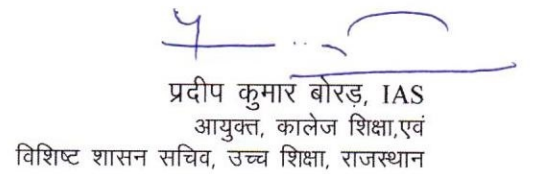 प्रदीप कुमार बोरड़, IAS
आयुक्त, कालेज शिक्षा,एवं
विशिष्ट शासन सचिव, उच्च शिक्षा, राजस्थान